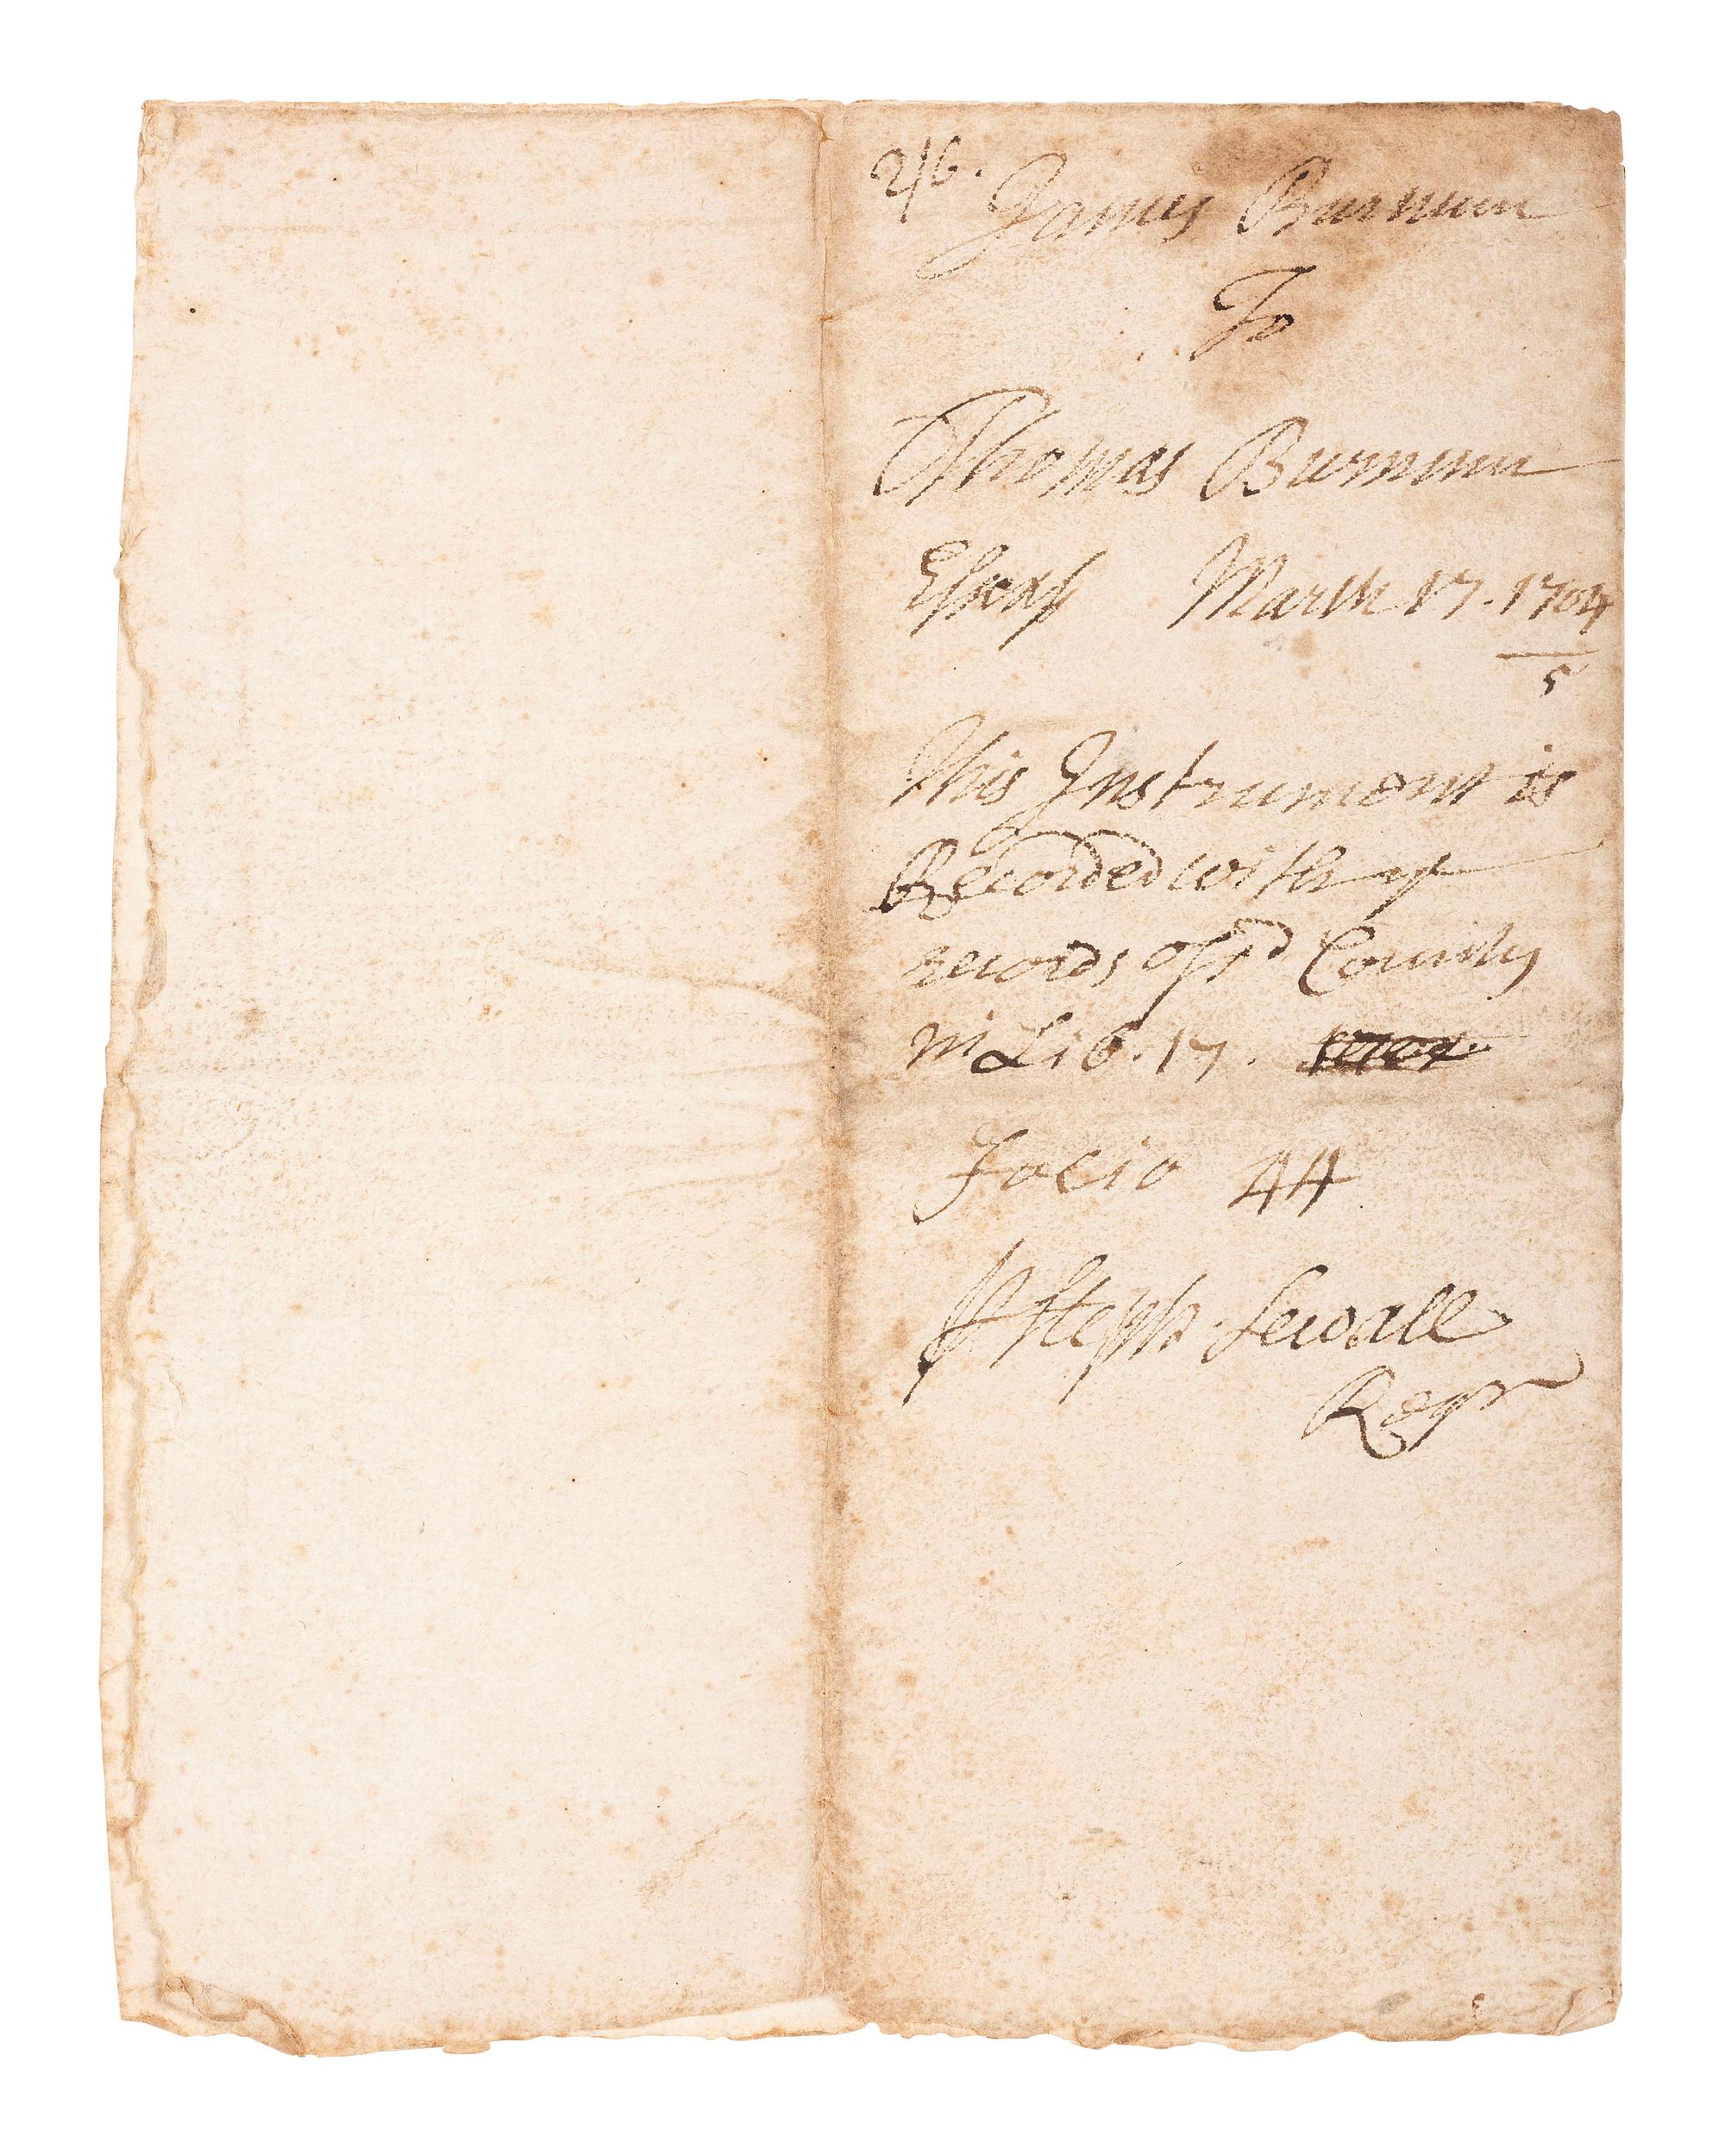 2/6.
James Burnum
To
Thomas Burnum
Essex ss March 17. 1704
5
This Instrument is
Recorded with ye
records of sd County
in Lib. 17.
Folio 44
P Steph. Sewall
Regr